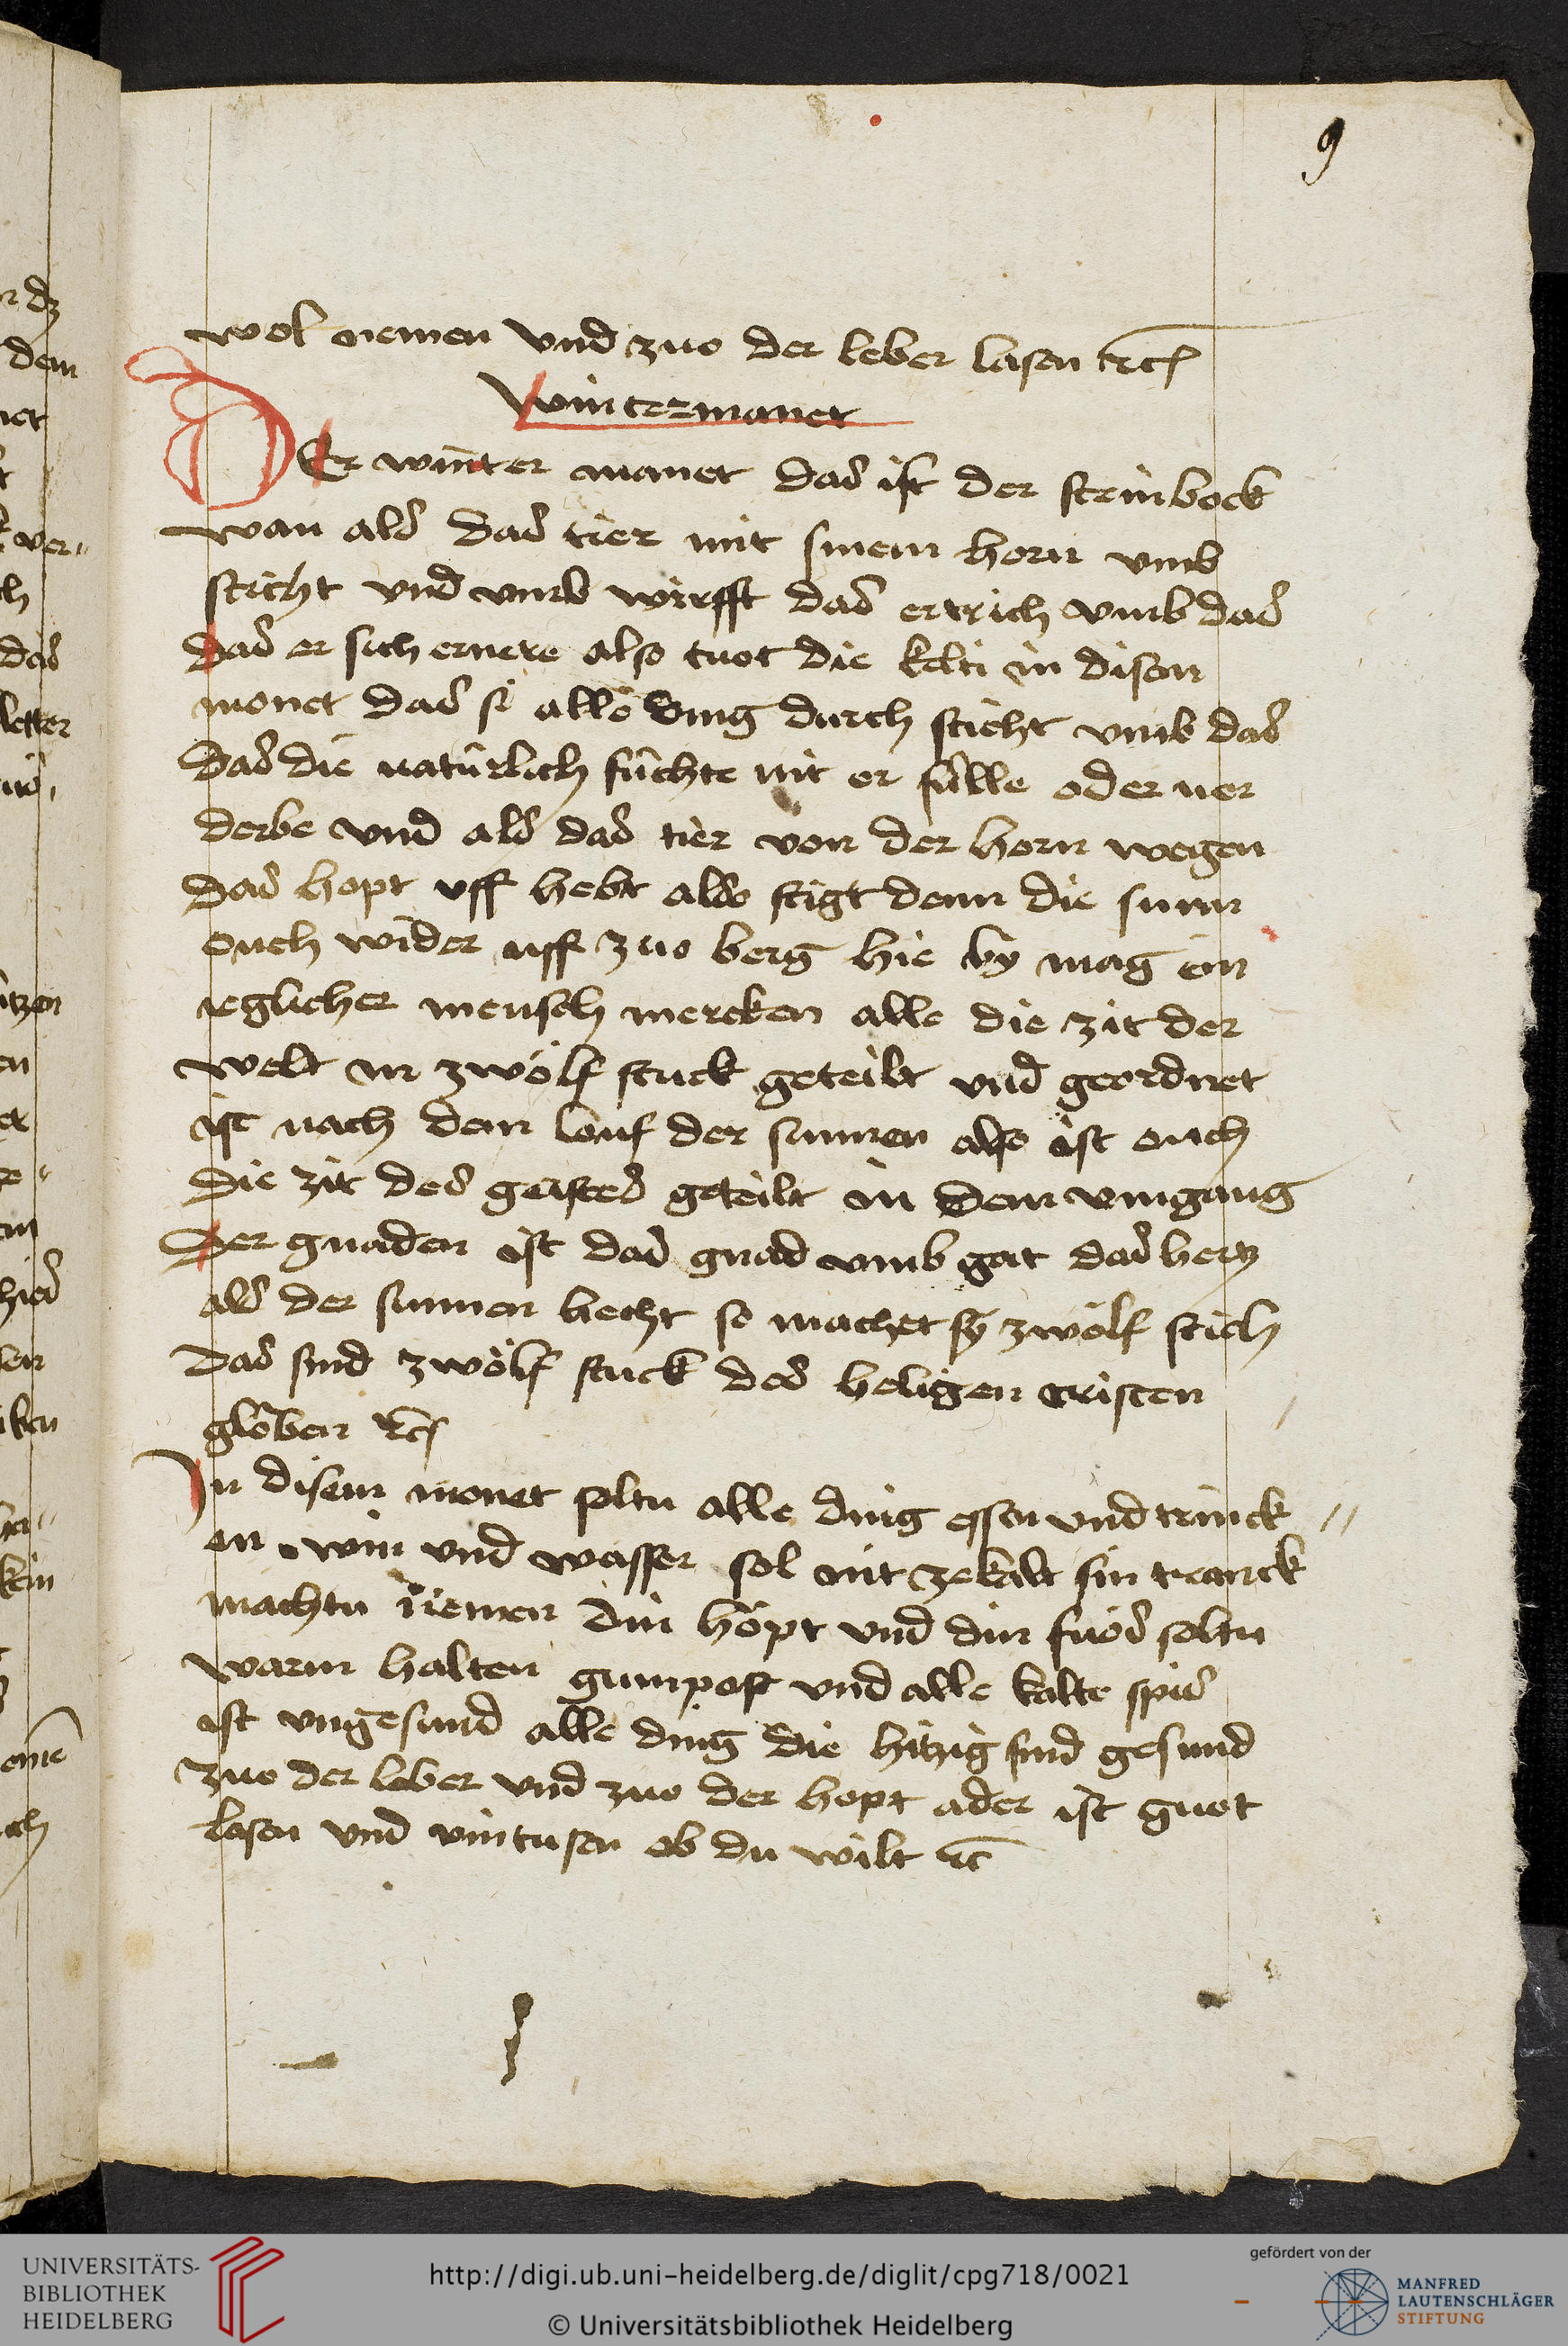 9
wol nemen vnd zuo der leber lasen etc
Wintermanet
DEr winter manet das ist der steinbock
wan als das tier mit sinem horn vmb
sticht vnd vmb wirfft das ertrich vmb das
das er sich ernere also tuot die kelti in disen
monet das si alle ding durch sticht vmb das
das die natúrlich fúchte nit er fúlle oder ver
derbe vnd als das tier von der horn wegen
das hopt vff hebt also stigt denn die sunn
ouch wider uff zuo berg hie by mag ein
ieglicher mensch mercken alle die zit der
welt in zwólf stuck geteilt vnd geordnet
ist nach dem louf der sunnen also ist ouch
die zit des geistes geteilt in dem vmgang
der gnaden ist das gnad vmb gat das hertz
als der sunnen liecht so machet sy zwólf stich
das sind zwólf stuck des heligen cristen
glóben etc
In disem monet soltu alle ding essen vnd trinck
en win vnd wasser sol nit ze kalt sin tranck
machtu niemen din hópt vnd din fuós soltu
warm halten gumpost vnd alle kalte spis
ist vngesund alle ding die hitzig sind gesund
zuo der leber vnd zuo der hopt ader ist guot
lasen vnd vintusen ob du wilt etc
UNIVERSITÄTS-
BIBLIOTHEK
HEIDELBERG
http://digi.ub.uni-heidelberg.de/diglit/cpg718/0021
© Universitätsbibliothek Heidelberg
gefördert von der
MANFRED
LAUTENSCHLÄGER
STIFTUNG